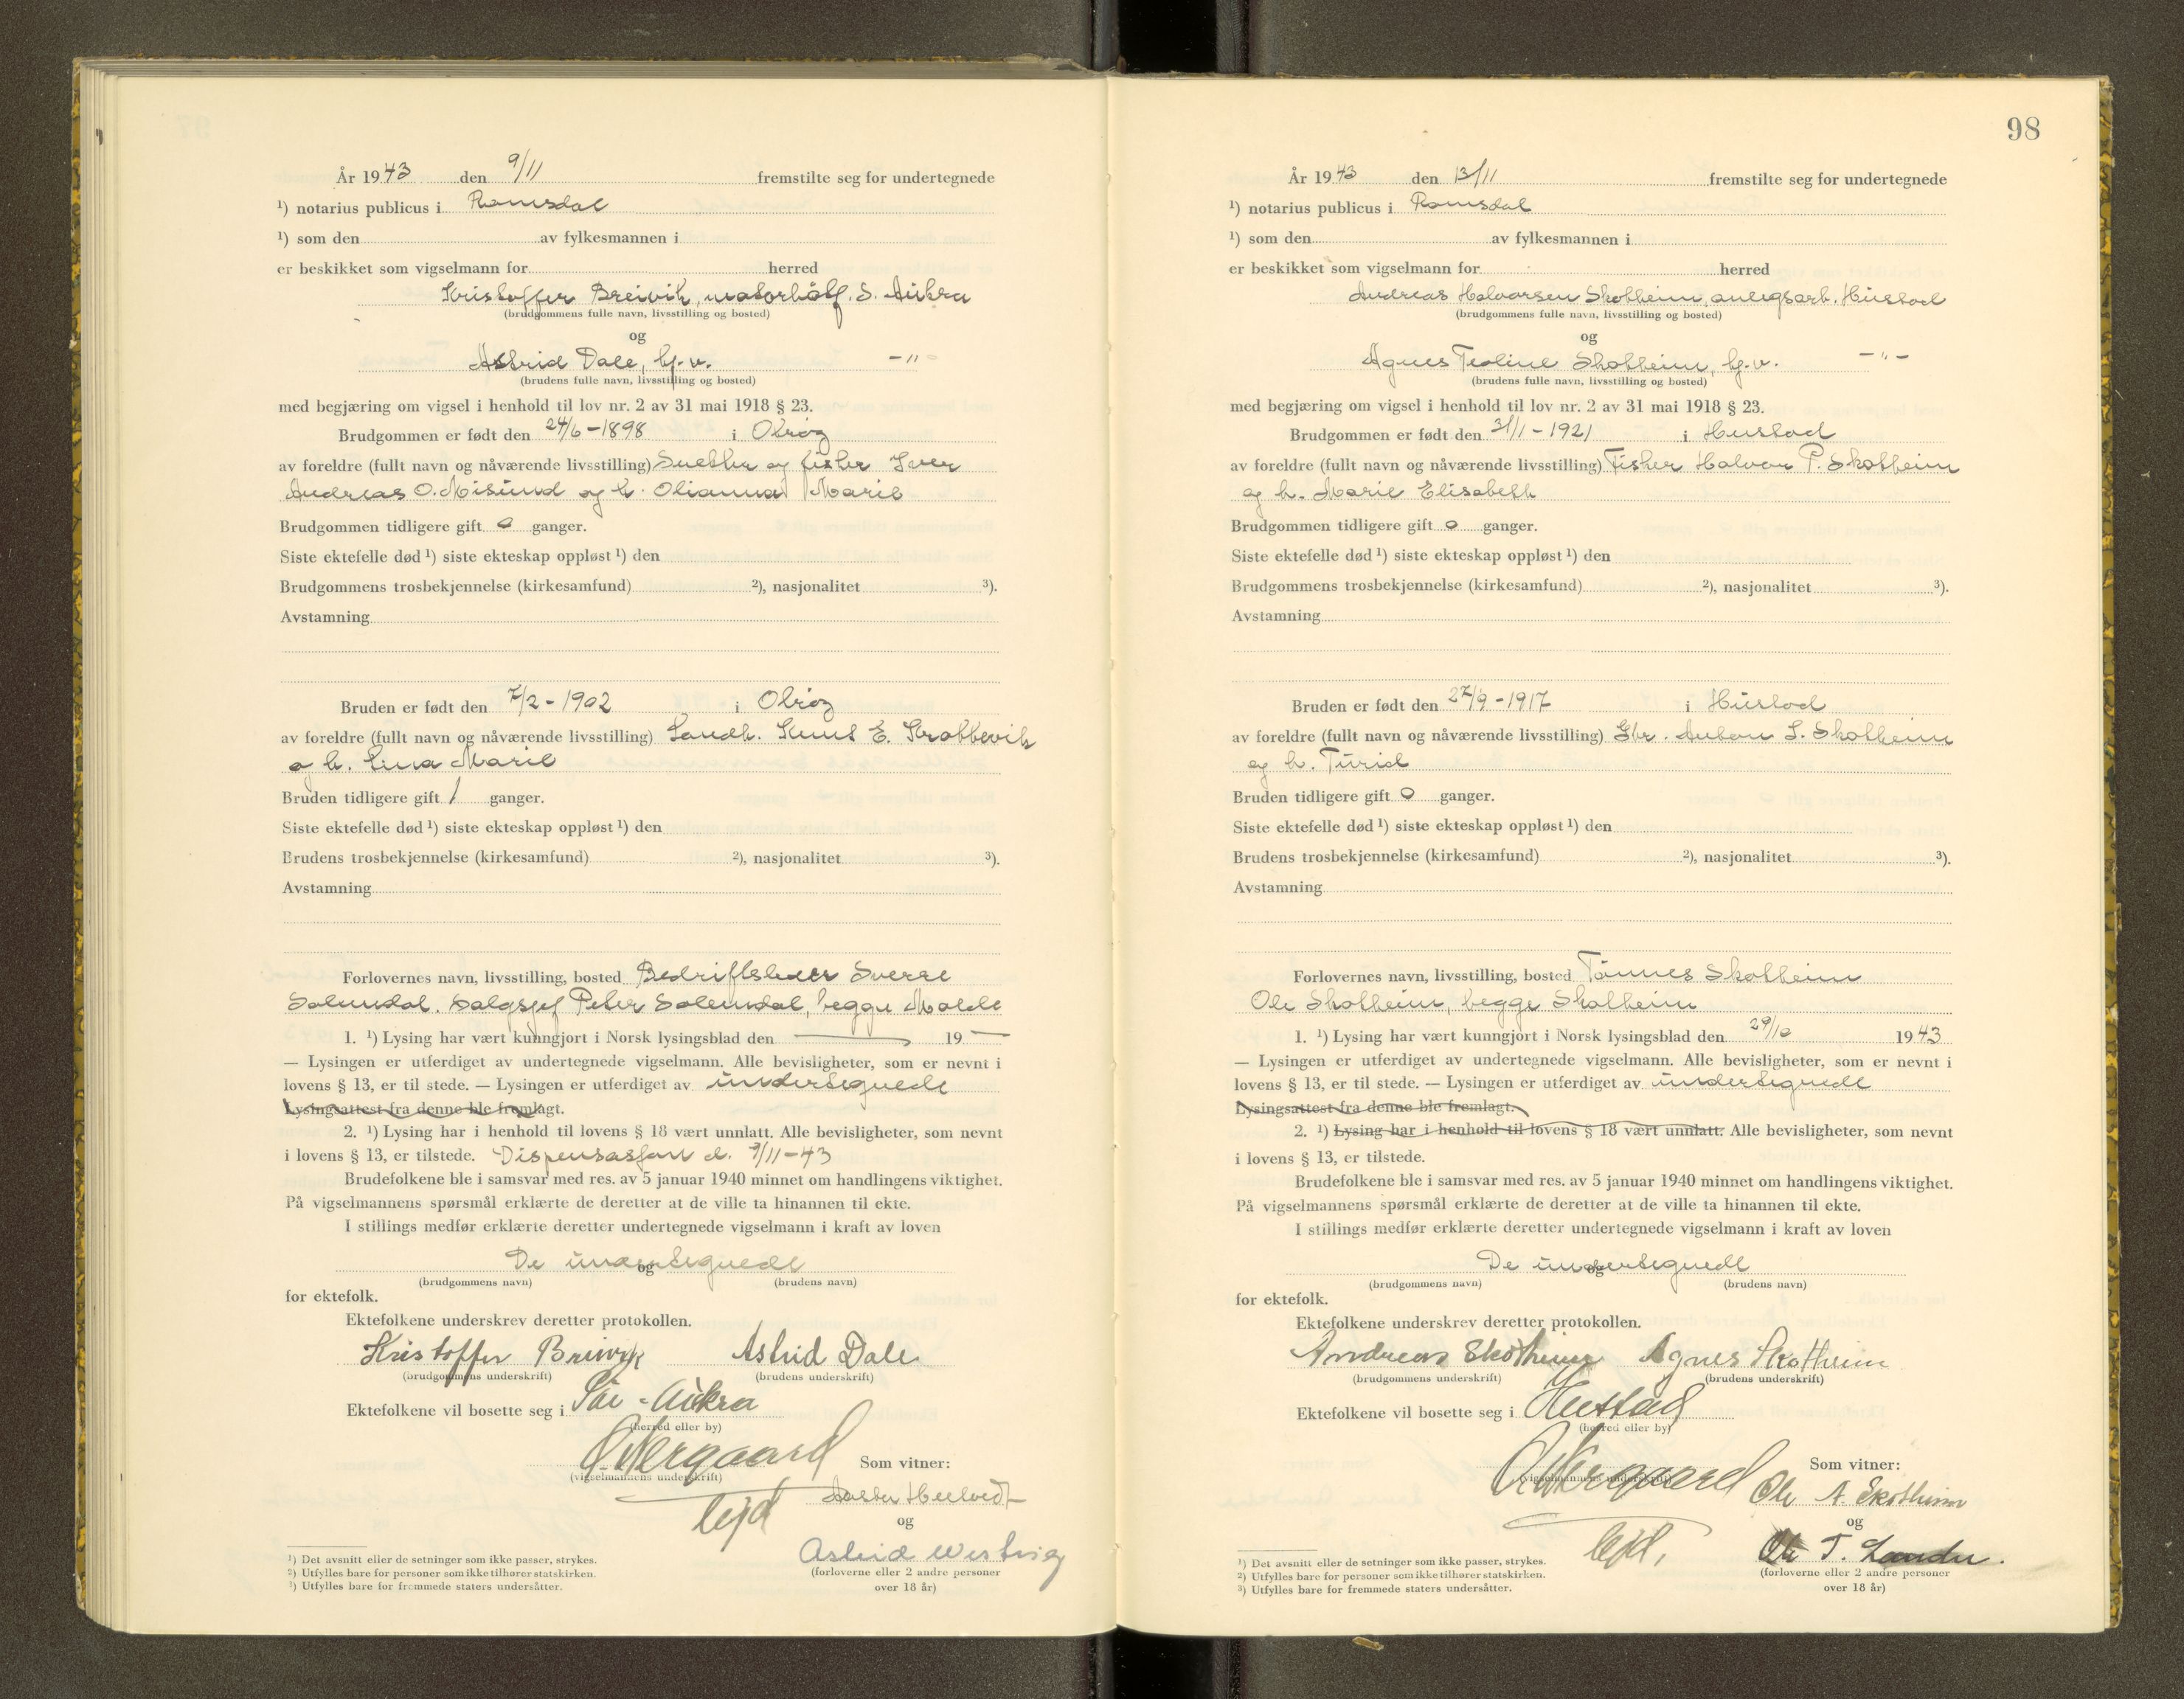 År 1943 den 9/11 fremstilte seg for undertegnede
¹) notarius publicus i Romsdal
¹) som den av fylkesmannen i
er beskikket som vigselmann for herred
Kristoffer Breivik, S. Aukra
(brudgommens fulle navn, livsstilling og bosted)
og
Astrid Dale, hj.v. -"-
(brudens fulle navn, livsstilling og bosted)
med begjæring om vigsel i henhold til lov nr. 2 av 31 mai 1918 § 23.
Brudgommen er født den 24/6-1898 i Otrøy
av foreldre (fullt navn og nåværende livsstilling) Snekker og fisker Iver
Andreas O. Misund og h. Olianna Marie
Brudgommen tidligere gift 0 ganger.
Siste ektefelle død ¹) siste ekteskap oppløst ¹) den
Brudgommens trosbekjennelse (kirkesamfund) ²), nasjonalitet ³).
Avstamning
Bruden er født den 7/2-1902 i Otrøy
av foreldre (fullt navn og nåværende livsstilling) Landh. Knut E. Krakkevik
o h. Lina Marie
Bruden tidligere gift 1 ganger.
Siste ektefelle død ¹) siste ekteskap oppløst ¹) den
Brudens trosbekjennelse (kirkesamfund) ²), nasjonalitet ³).
Avstamning
Forlovernes navn, livsstilling, bosted Bedriftsleder Sverre
Solemdal. Salgsjef Peter Solemdal, begge Molde
1. ¹) Lysing har vært kunngjort i Norsk lysingsblad den — 19 —
— Lysingen er utferdiget av undertegnede vigselmann. Alle bevisligheter, som er nevnt i
lovens § 13, er til stede. — Lysingen er utferdiget av undertegnede
Lysingsattest fra denne ble fremlagt.
2. ¹) Lysing har i henhold til lovens § 18 vært unnlatt. Alle bevisligheter, som nevnt
i lovens § 13, er tilstede. Dispensasjon d. 9/11-43
Brudefolkene ble i samsvar med res. av 5 januar 1940 minnet om handlingens viktighet.
På vigselmannens spørsmål erklærte de deretter at de ville ta hinannen til ekte.
I stillings medfør erklærte deretter undertegnede vigselmann i kraft av loven
De undertegnede
og
(brudgommens navn) (brudens navn)
for ektefolk.
Ektefolkene underskrev deretter protokollen.
Kristoffer Breivik Astrid Dale
(brudgommens underskrift) (brudens underskrift)
Ektefolkene vil bosette seg i Sør-Aukra
(herred eller by)
(vigselmannens underskrift) Som vitner:
og
(forloverne eller 2 andre personer
over 18 år)
¹) Det avsnitt eller de setninger som ikke passer, strykes.
²) Utfylles bare for personer som ikke tilhører statskirken.
³) Utfylles bare for fremmede staters undersåtter.
98
År 1943 den 13/11 fremstilte seg for undertegnede
¹) notarius publicus i Romsdal
¹) som den av fylkesmannen i
er beskikket som vigselmann for herred
Andreas Halvorsen Skotheim, anlegsarb. Hustad
(brudgommens fulle navn, livsstilling og bosted)
og
Agnes Teoline Skotheim, hj.v. -"-
(brudens fulle navn, livsstilling og bosted)
med begjæring om vigsel i henhold til lov nr. 2 av 31 mai 1918 § 23.
Brudgommen er født den 31/1-1921 i Hustad
av foreldre (fullt navn og nåværende livsstilling) Fisker Halvor P. Skotheim
og h. Marie Elisabeth
Brudgommen tidligere gift 0 ganger.
Siste ektefelle død ¹) siste ekteskap oppløst ¹) den
Brudgommens trosbekjennelse (kirkesamfund) ²), nasjonalitet ³).
Avstamning
Bruden er født den 27/9-1917 i Hustad
av foreldre (fullt navn og nåværende livsstilling) Gbr. Anton L. Skotheim
og h. Turid
Bruden tidligere gift 0 ganger.
Siste ektefelle død ¹) siste ekteskap oppløst ¹) den
Brudens trosbekjennelse (kirkesamfund) ²), nasjonalitet ³).
Avstamning
Forlovernes navn, livsstilling, bosted Tønnes Skotheim
Ole Skotheim, begge Skotheim
1. ¹) Lysing har vært kunngjort i Norsk lysingsblad den 29/10 1943
— Lysingen er utferdiget av undertegnede vigselmann. Alle bevisligheter, som er nevnt i
lovens § 13, er til stede. — Lysingen er utferdiget av undertegnede
Lysingsattest fra denne ble fremlagt.
2. ¹) Lysing har i henhold til lovens § 18 vært unnlatt. Alle bevisligheter, som nevnt
i lovens § 13, er tilstede.
Brudefolkene ble i samsvar med res. av 5 januar 1940 minnet om handlingens viktighet.
På vigselmannens spørsmål erklærte de deretter at de ville ta hinannen til ekte.
I stillings medfør erklærte deretter undertegnede vigselmann i kraft av loven
De undertegnede
og
(brudgommens navn) (brudens navn)
for ektefolk.
Ektefolkene underskrev deretter protokollen.
Andreas Skotheim Agnes Skotheim
(brudgommens underskrift) (brudens underskrift)
Ektefolkene vil bosette seg i Hustad
(herred eller by)
(vigselmannens underskrift) Som vitner:
Ole A. Skotheim
og
Ole T.
(forloverne eller 2 andre personer
over 18 år)
¹) Det avsnitt eller de setninger som ikke passer, strykes.
²) Utfylles bare for personer som ikke tilhører statskirken.
³) Utfylles bare for fremmede staters undersåtter.